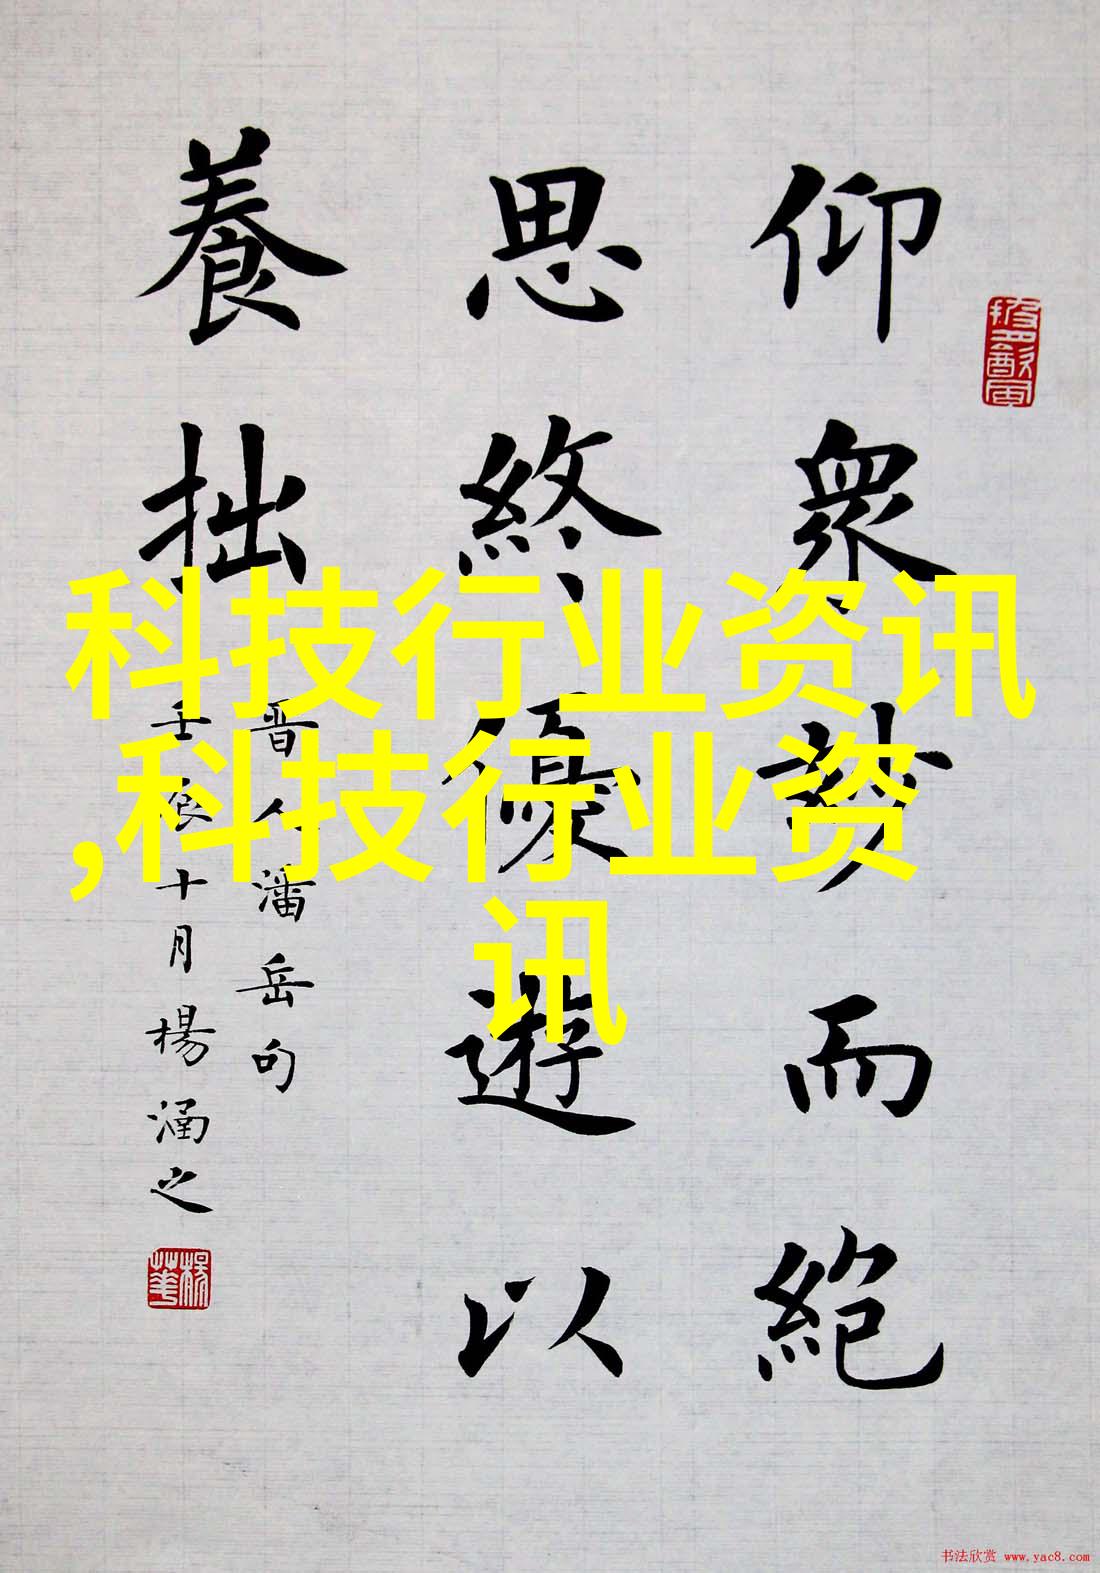 仰眾妙而絶
思終優遊以
養拙
晋人潘岳句
壬辰十月楊涵之
科技行业资讯
,科技行业资
讯
书法欣赏 www.yac8.com